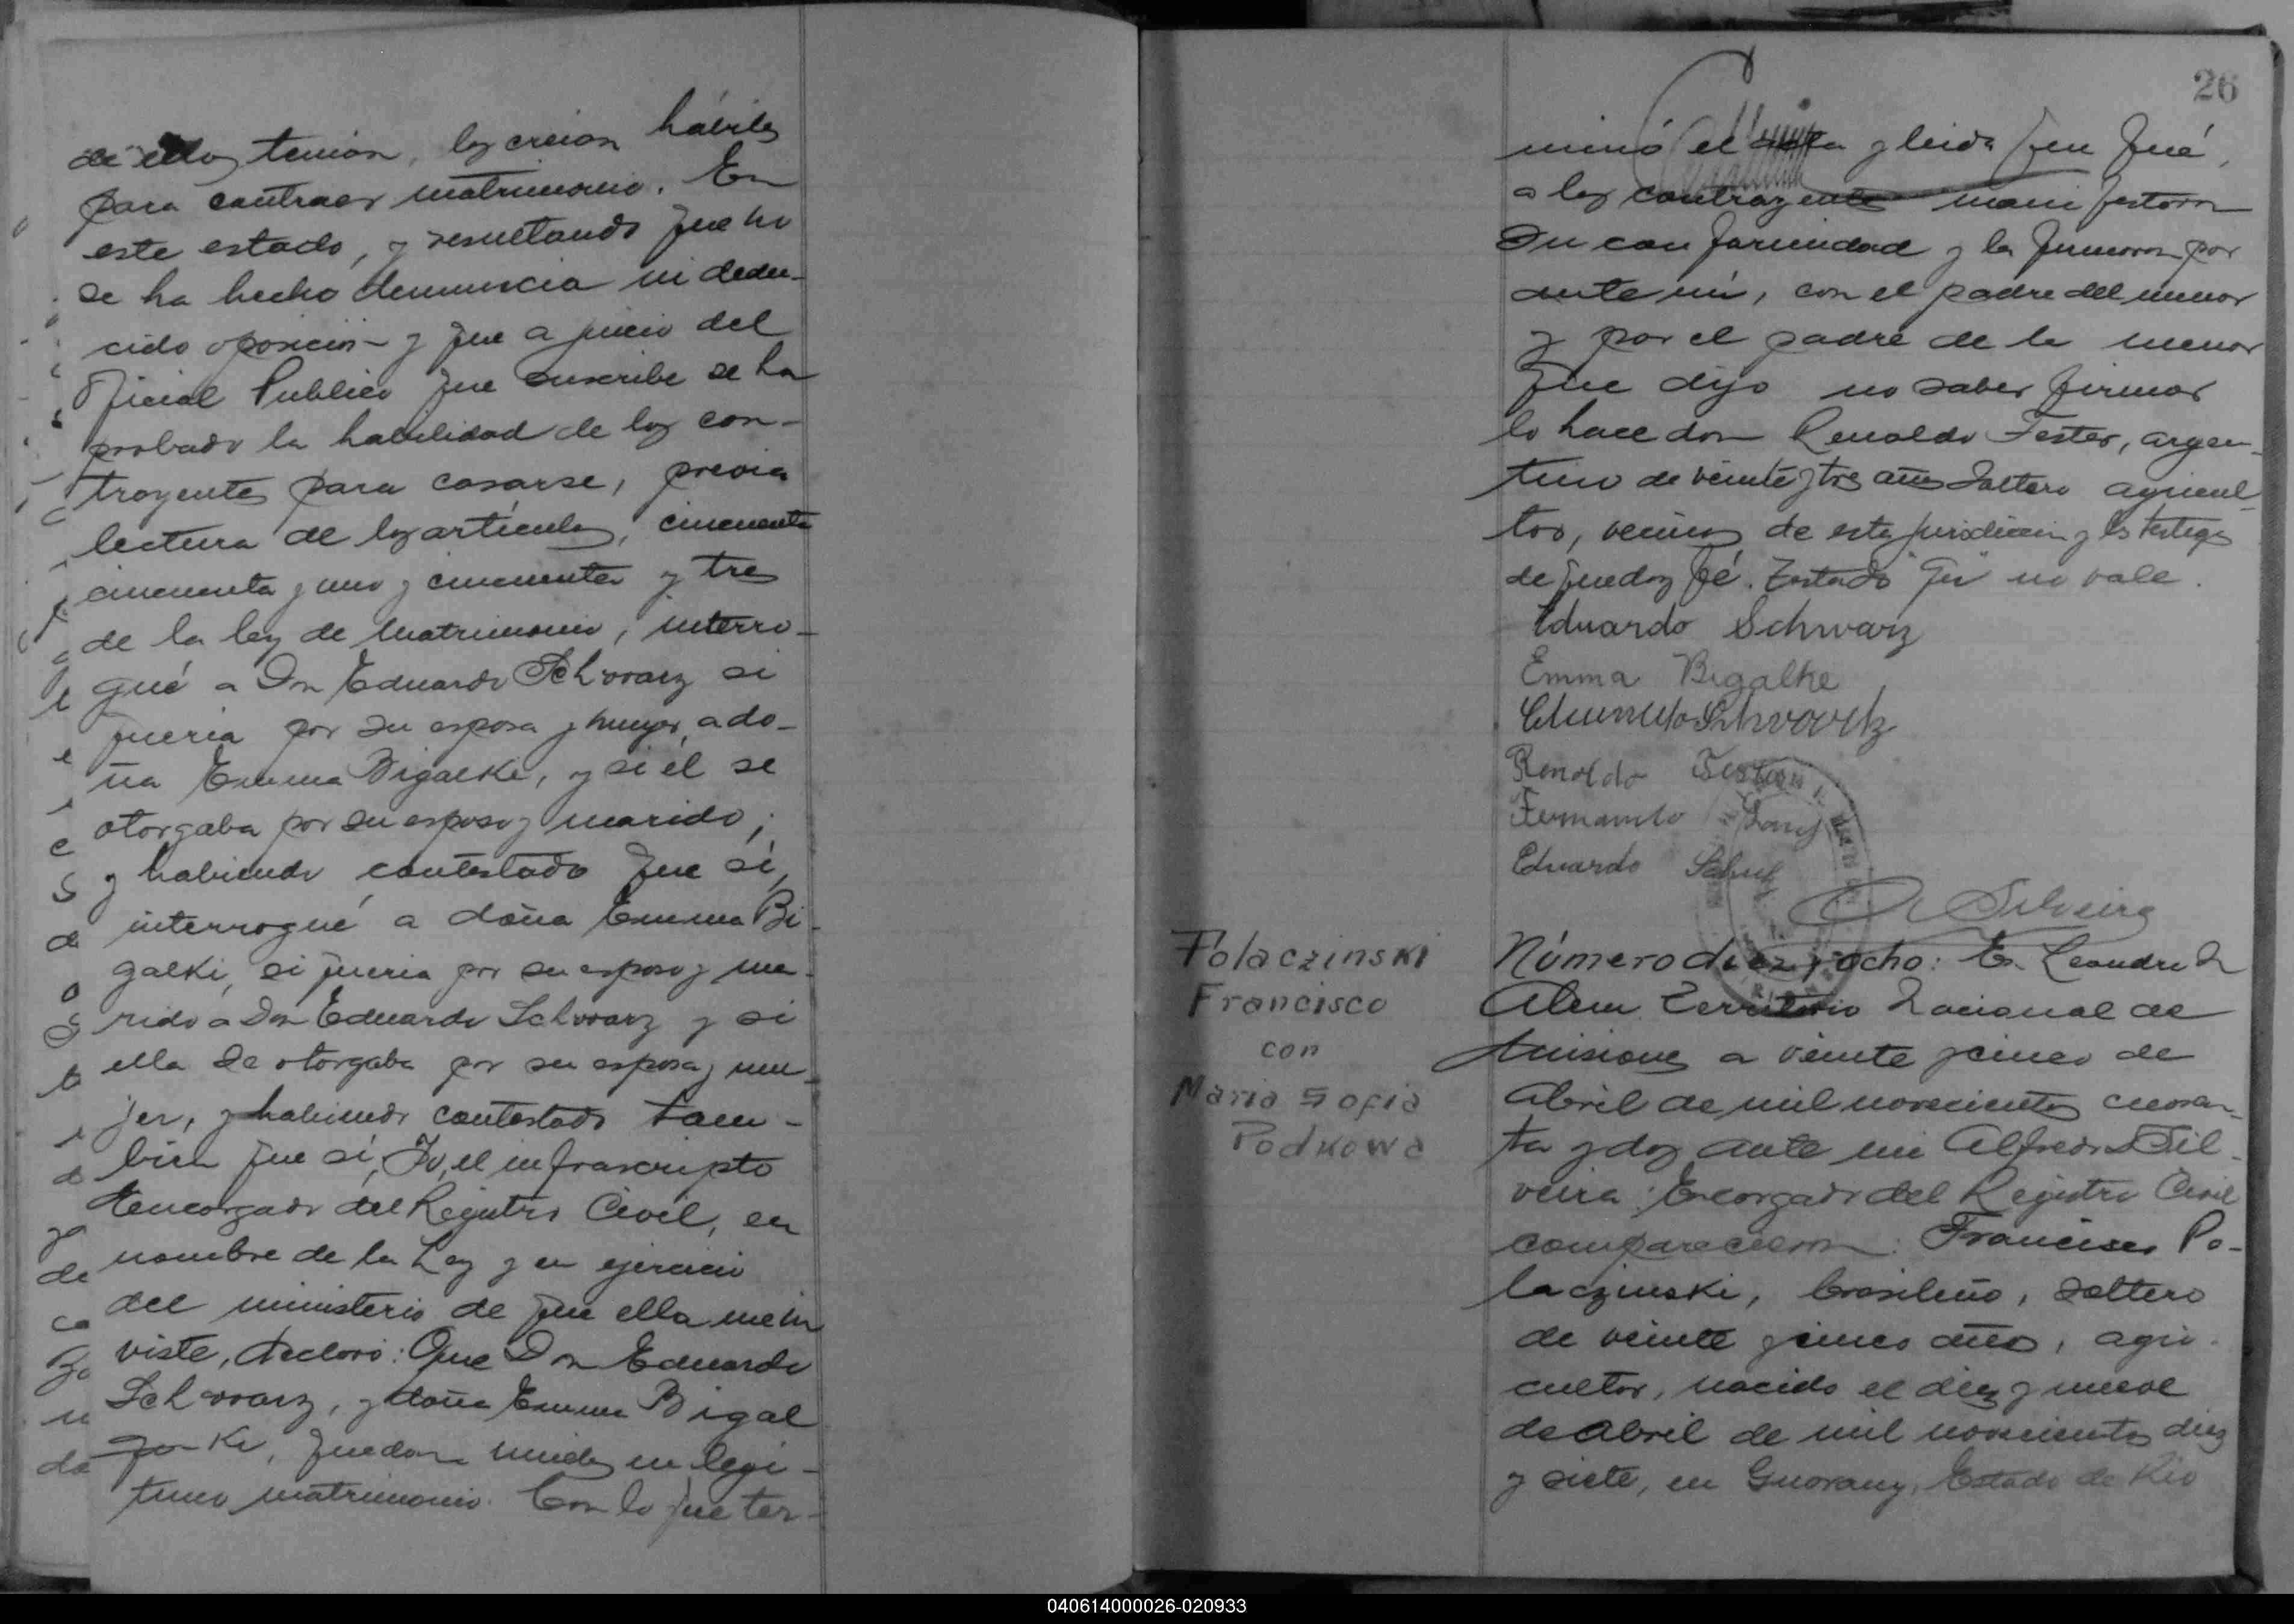 de ellos tenian, los creian hábiles
para contraer matrimonio. En
este estado, y resultando que no
se ha hecho denuncia ni dedu-
cido oposicion y que a juicio del
Oficial Publico que suscribe se ha
probado la habilidad de los con-
trayentes para casarse, previa
lectura de los artículos, cincuenta
cincuenta y uno y cincuenta y tres
de la ley de Matrimonio, interro-
gué a Don Eduardo Schwarz si
queria por su esposa y mujer, a do-
ña Emma Bigalke, y si él se
otorgaba por su esposo y marido;
y habiendo contestado que sí,
interrogué a doña Emma Bi-
galki, si queria por su esposo y ma-
rido a Don Eduardo Schwarz y si
ella se otorgaba por su esposa y mu-
jer, y habiendo contestado tam-
bien que sí, Yo, el infrascripto
Encargado del Registro Civil, en
nombre de la Ley y en ejercicio
del ministerio de que ella me in
viste, declaro: Que Don Eduardo
Schwarz, y doña Emma Bigal
ki, quedan unidos en legi-
timo matrimonio. Con lo que ter-
26
minó el acta y leida que fué,
a los contrayentes manifestaron
su conformidad y la firmaron por
ante mí, con el padre del menor
y por el padre de la menor
que dijo no saber firmar
lo hace don Renaldo Fester, argen-
tino de veinte y tres años soltero agricul-
tor, vecinos de esta jurisdiccion y los testigos
de que doy fé. Testado no vale.
Eduardo Schwarz
Emma Bigalke
Renoldo
Fernando
Eduardo
Silveira
Polaczinski
Francisco
con
Maria Sofia
Podkowa
Número diez y ocho: En Leandro N
Alem Territorio Nacional de
Misiones a veinte y cinco de
Abril de mil novecientos cuaren-
ta y dos ante mi Alfredo Sil-
veira: Encargado del Registro Civil
comparecieron: Francisco Po-
laczinski, brasileño, soltero
de veinte y cinco años, agri-
cultor, nacido el diez y nueve
de Abril de mil novecientos diez
y siete, en Guarany, Estado de Rio
040614000026-020933